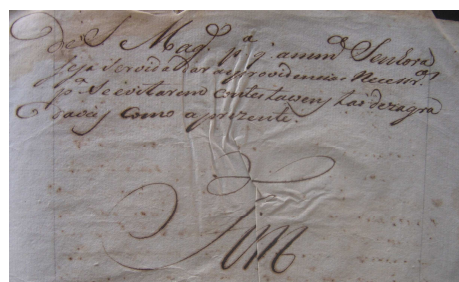 De S Mag.e p.a q. a mm.a Senhora
seja servida dar as providencias Necesr.as
p.a Se evitarem contestasens tao dezagra
daveis como a prezente.